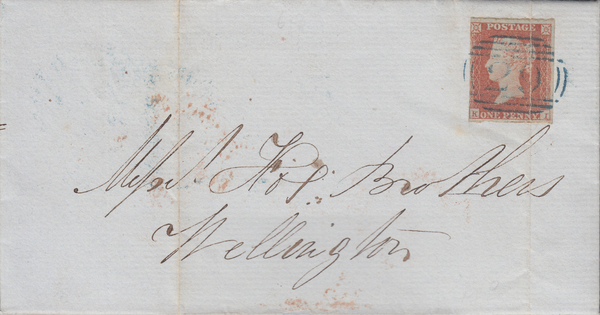 POSTAGE
ONE PENNY
Messrs Fox Brothers
Wellington